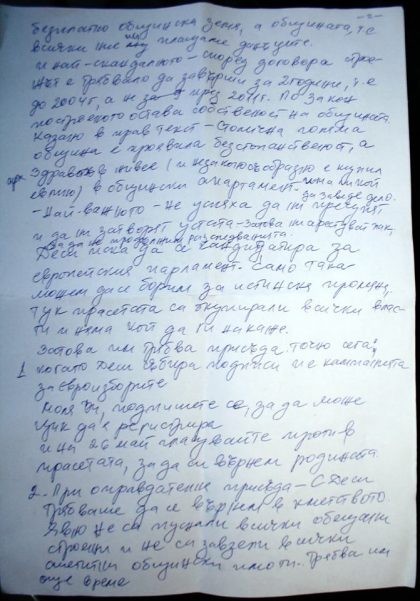 -2-
безплатно общинска земя, а общината, т.е
всички ние плащаме данъците.
и най-скандалното - според договора строе-
жът е трябвало да завърши за 2 години, т.е
до 2004г, а не през 2011г. По закон
построеното остава собственост на общината
Казано в прав текст - Столична голяма
община е проявила безстопанственост, а
живее (и незаконосъобразно е купил
евтино) в общински апартамент
- Най-важното - Не успяха да ни пречупят
и да ни затворят устата - Затова
за да не продължим разследванията.
Деси иска да се кандидатира за
европейския парламент. Само така
можем да се борим за истински промени,
тук прасетата са окупирали всички влас-
ти и няма кой да ги накаже.
Затова им трябва присъда точно сега:
1 когато Деси събира подписи и е кампанията
за евроизборите
Моля Ви, подпишете се, за да може
да я регистрира
и на 26 май гласувайте против
прасетата, за да си върнем родината
2. При оправдателна присъда - С Деси
трябваше да се върнем в кметството.
Явно не са пуснали всички обещани
строежи и не са завзели всички
общински имоти. Трябва им
още време